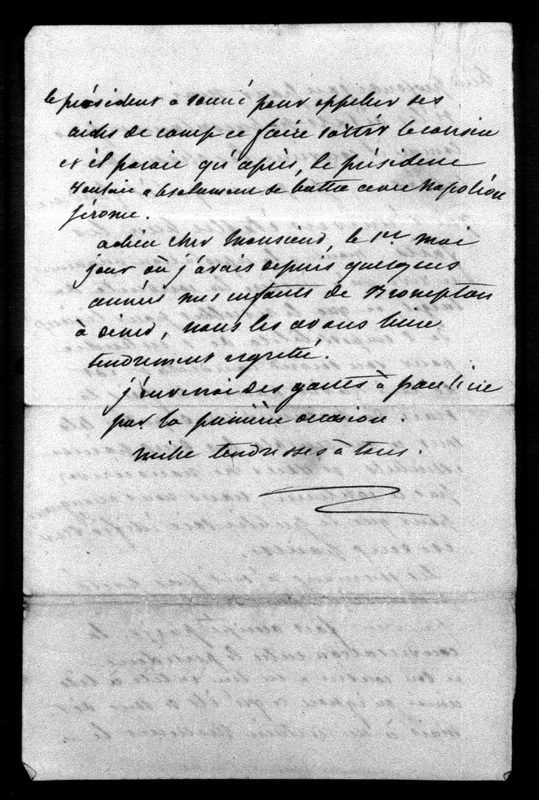 le président a sonné pour appeller ses
aides de camp ce faire sortir le cousin
et il parait qu'après, le président
voulait absolument se battre avec Napoléon
Jérome.
adieu cher Monsieur, le 1er mai
jour où j'avais depuis quelques
années mes enfants de Brompton
à diner, nous les avons bien
tendrement regretté.
j'enverrai des gants à pauline
par la première occasion.
mille tendresses à tous.